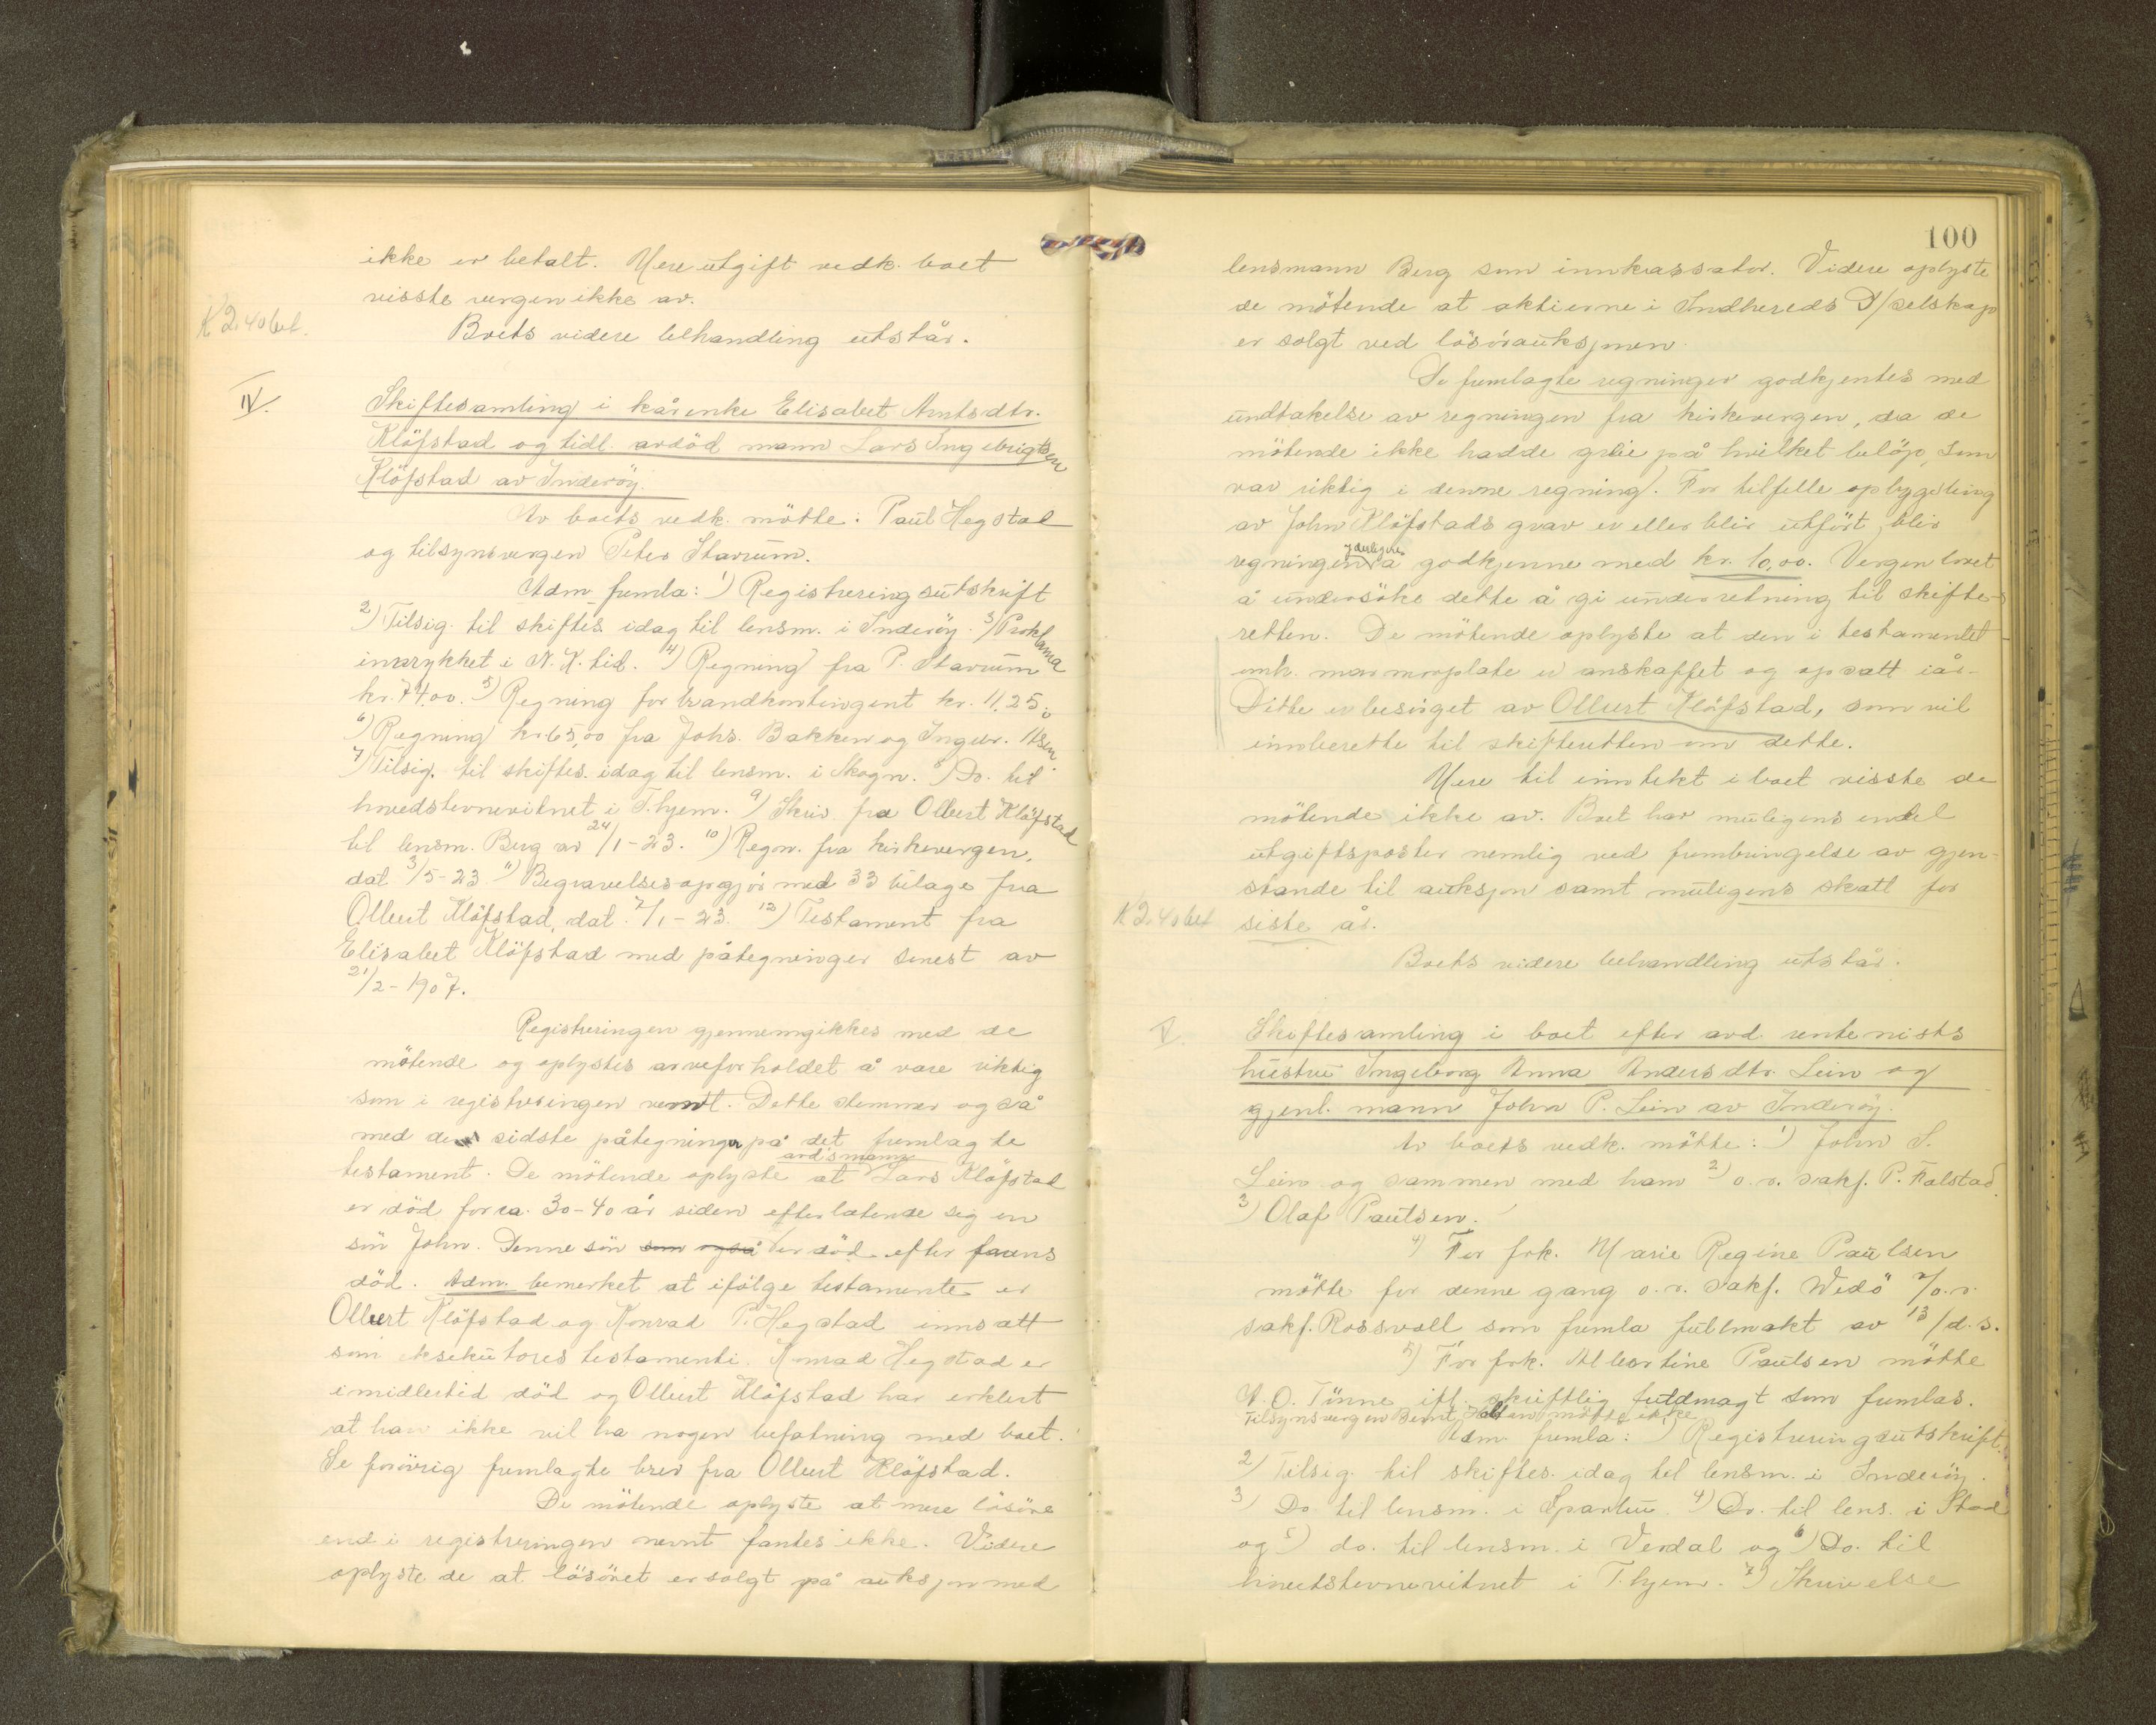 ikke er betalt. Mere utgift vedk. boet
visste vergen ikke av.
K 2.40 bet.
Boets videre behandling utstår.
IV.
Skiftesamling i kårenke Elisabet Arntsdtr.
Klöfstad og tidl. avdöd mann Lars Ingebrigtsen
Klöfstad av Inderöy.
Av boets vedk. mötte: Paul Hegstad
og tilsynsvergen Peter Stavrum.
Adm. fremla: 1) Registreringsutskrift
2) Tilsig. til skiftes. idag til lensm. i Inderöy. 3) Proklama
innrykket i N. K. tid. 4) Regning fra P. Stavrum
kr. 74.00. 5) Regning for brandkontingent kr. 11.25.
6) Regning kr. 65,00 fra Johs. Bakken og Ingvr.
7) Tilsig. til skiftes. idag til lensm. i Skogn. 8) Do. til
hovedstevnevitnet i T.hjem. 9) Skriv. fra Ollert Klöfstad
til lensm. Berg av 24/1-23. 10) Regn. fra kirkevergen,
dat. 3/5-23 11) Begravelsesopgjör med 33 bilage fra
Ollert Klöfstad, dat. 7/1-23. 12) Testament fra
Elisabet Klöfstad med påtegninger senest av
21/2-1907.
Registreringen gjennemgikkes med de
mötende og oplystes arveforholdet å vare riktig
som i registreringen nevnt. Dette stemmer også
med den sidste påtegning på det fremlagte
avd's mann
testament. De mötende oplyste at Lars Klöfstad
er död for ca. 30-40 år siden efterlatende sig en
sön John. Denne sön som også er död efter farens
död. Adm. bemerket at ifölge testamente er
Ollert Klöfstad og Konrad P. Hegstad innsatt
som eksekutores testamenti. Konrad Hegstad er
imidlertid död og Ollert Klöfstad har erklert
at han ikke vil ha nogen befatning med boet.
Se forövrig fremlagte brev fra Ollert Klöfstad.
De mötende oplyste at mere lösöre
end i registreringen nevnt fantes ikke. Videre
oplyste de at lösöret er solgt på auksjon med
100
lensmann Berg som innkassator. Videre oplyste
de mötende at aktierne i Indhereds D/selskap
er solgt ved lösöreauksjonen.
De fremlagte regninger godkjentes med
undtakelse av regningen fra kirkevergen, da de
mötende ikke hadde greie på hvilket belöp som
var riktig i denne regning. For tilfelle opbygdling
av John Klöfstads grav er eller blir utfört, blir
yderligere
regningen å godkjenne med kr. 10,00. Vergen lovet
å undersöke dette å gi underretning til skifte-
retten. De mötende oplyste at den i testamentet
omh. marmorplate er anskaffet og opsatt iår.
Dette er besörget av Ollert Klöfstad, som vil
innberette til skifteretten om dette.
Mere til inntekt i boet visste de
mötende ikke av. Boet har muligens endel
utgiftsposter nemlig ved frembringelse av gjen-
stande til auksjon samt muligens skatt for
K 2.40 bet
siste år.
Boets videre behandling utstår.
V.
Skiftesamling i boet efter avd. rentenists
hustru Ingeborg Anna Andersdtr. Lein og
gjenl. mann John P. Lein av Inderöy.
Av boets vedk. mötte: 1) John P.
Lein og sammen med ham 2) o.r. sakf. P. Falstad.
3) Olaf Paulsen.
4) For frk. Marie Regine Paulsen
mötte for denne gang o.r. sakf. Wedö f/o.r.
sakf. Rossvoll som fremla fullmakt av 13/d.s.
5) For frk. Albertine Paulsen mötte
A. O. Tinne ifl. skriftlig fuldmagt som fremlas.
Tilsynsvergen Bernt mötte ikke
Adm. fremla: 1) Registreringsutskrift.
2) Tilsig. til skiftes. idag til lensm. i Inderöy.
3) Do til lensm. i Sparbu. 4) Do. til lens. i Stod
og 5) do. til lensm. i Verdal og 6) Do. til
hovedstevnevitnet i T.hjem. 7) Skrivelse